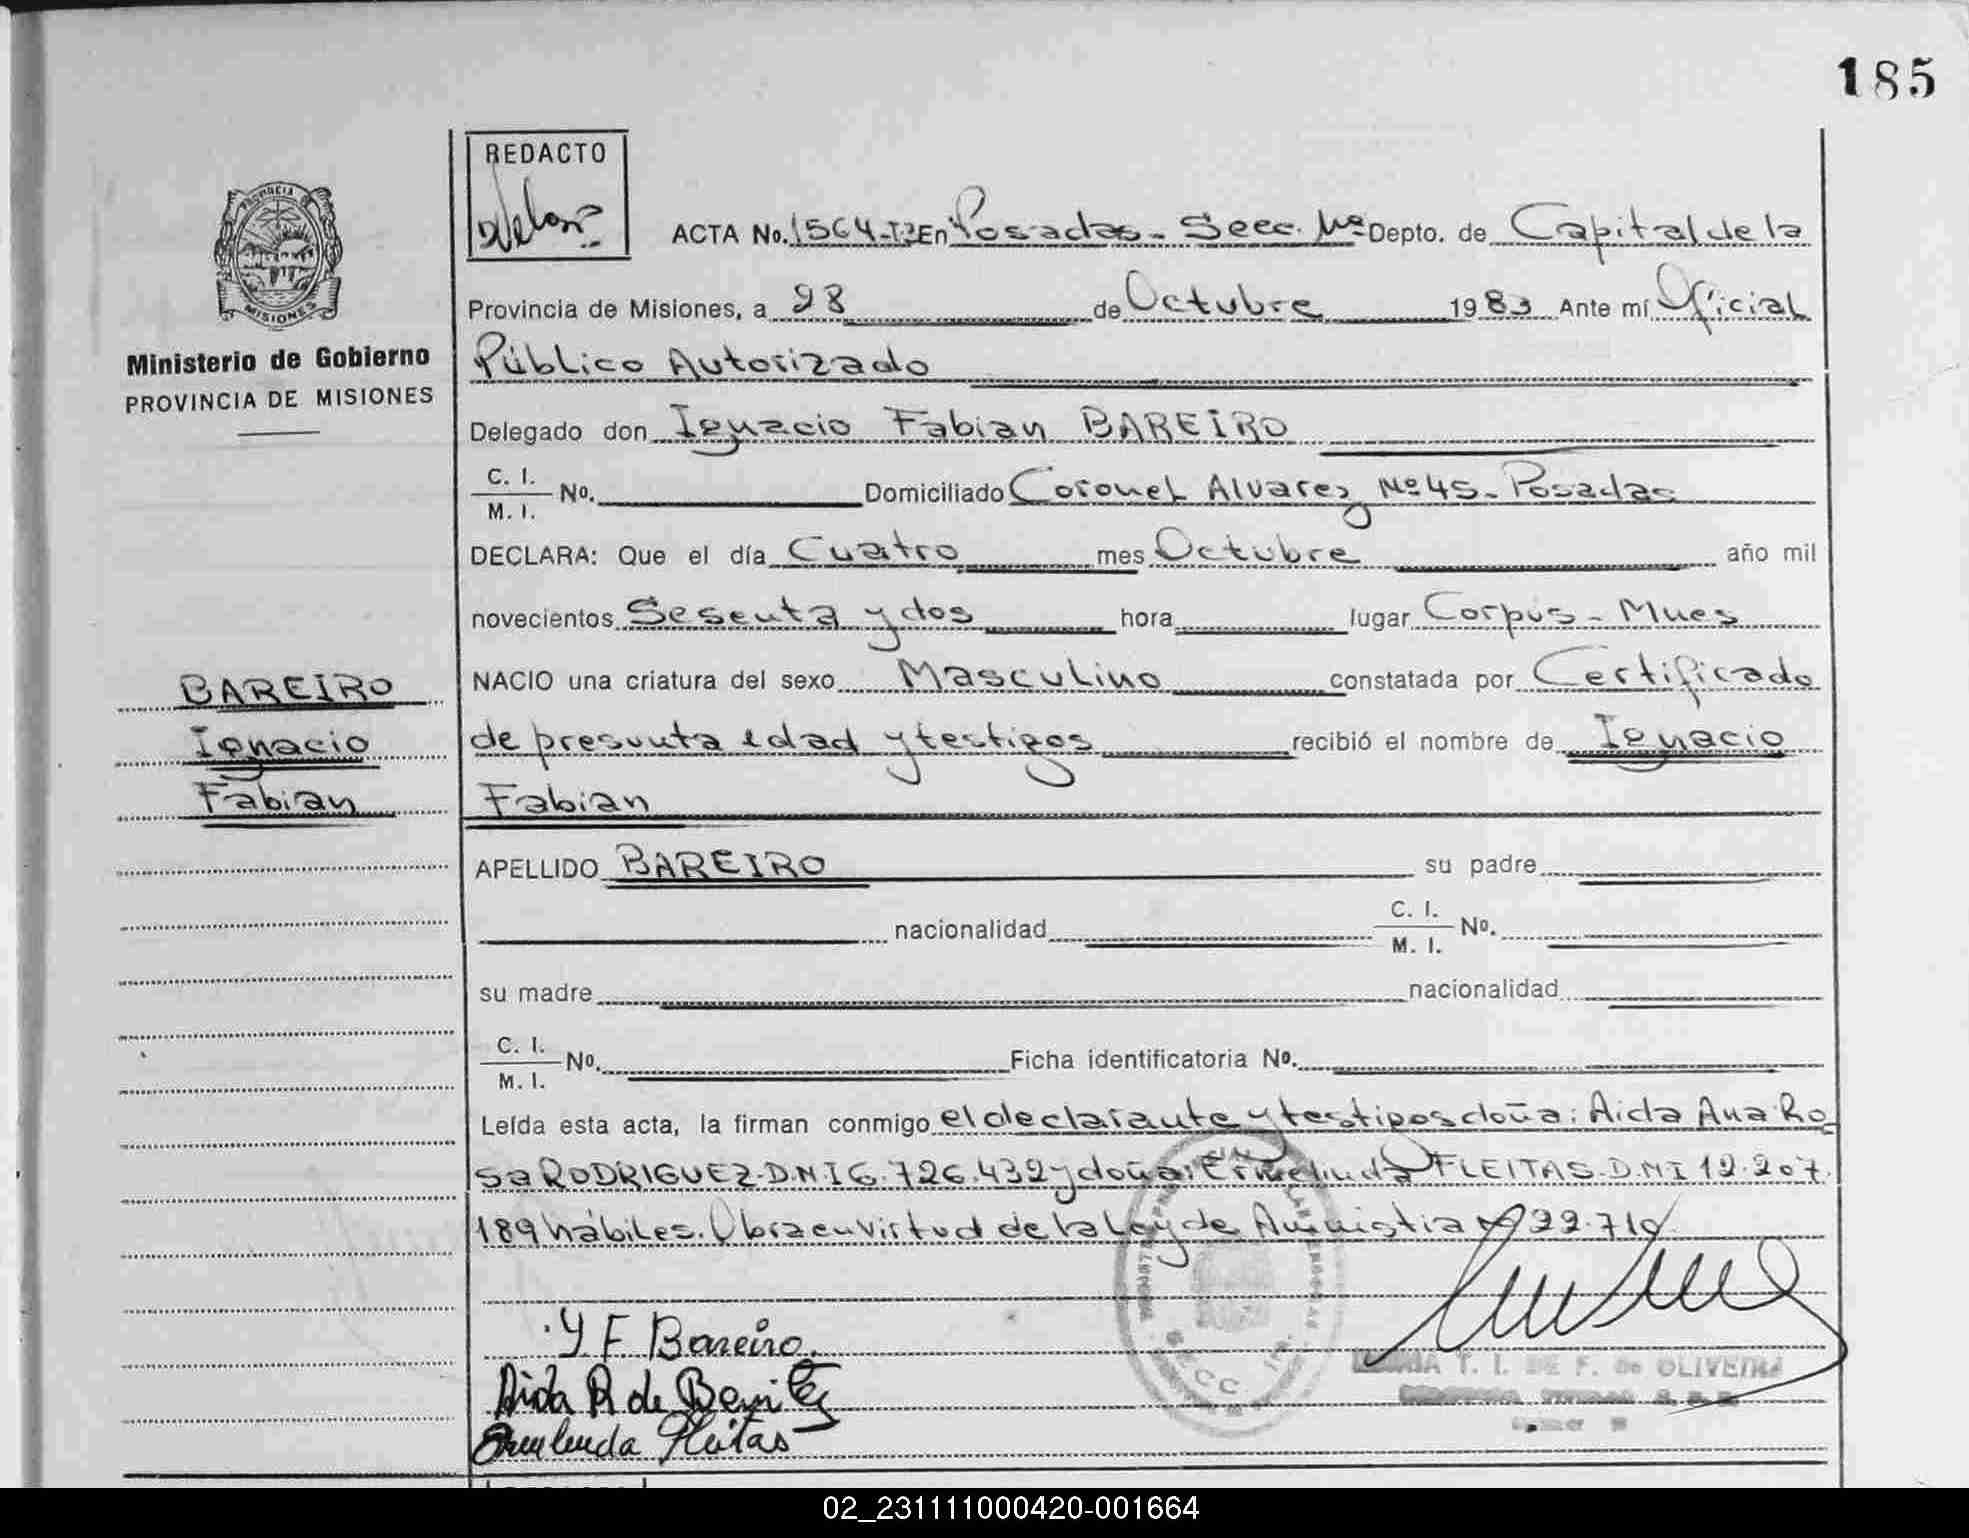 185
REDACTO
PROVINCIA DE
MISIONES
ACTA No. 1564-T2 En Posadas - Secc. 1ra Depto. de Capital de la
Provincia de Misiones, a 28 de Octubre 1983 Ante mí Oficial
Público Autorizado
Ministerio de Gobierno
PROVINCIA DE MISIONES
Delegado don Ignacio Fabian BAREIRO
C. I.
M. I. No. Domiciliado Coronel Alvarez Nº 45 - Posadas
DECLARA: Que el día Cuatro mes Octubre año mil
novecientos Sesenta y dos hora lugar Corpus - Mnes
BAREIRO
Ignacio
Fabian
NACIO una criatura del sexo Masculino constatada por Certificado
de presunta edad y testigos recibió el nombre de Ignacio
Fabian
APELLIDO BAREIRO su padre
nacionalidad C. I.
M. I. No.
su madre nacionalidad
C. I.
M. I. No. Ficha identificatoria No.
Leída esta acta, la firman conmigo el declarante y testigos doña: Aida Ana Ro
sa RODRIGUEZ-D.N.I 6.726.432 y doña: Ermelinda FLEITAS-D.N.I 12.207.
189 hábiles. Obra en virtud de la Ley de Amnistia Nº 22.710
Y F Bareiro.
Aida R de Benitez
Ermelinda Fleitas
SECC 1ra.
T. I. DE F. de OLIVEIRA
02_231111000420-001664